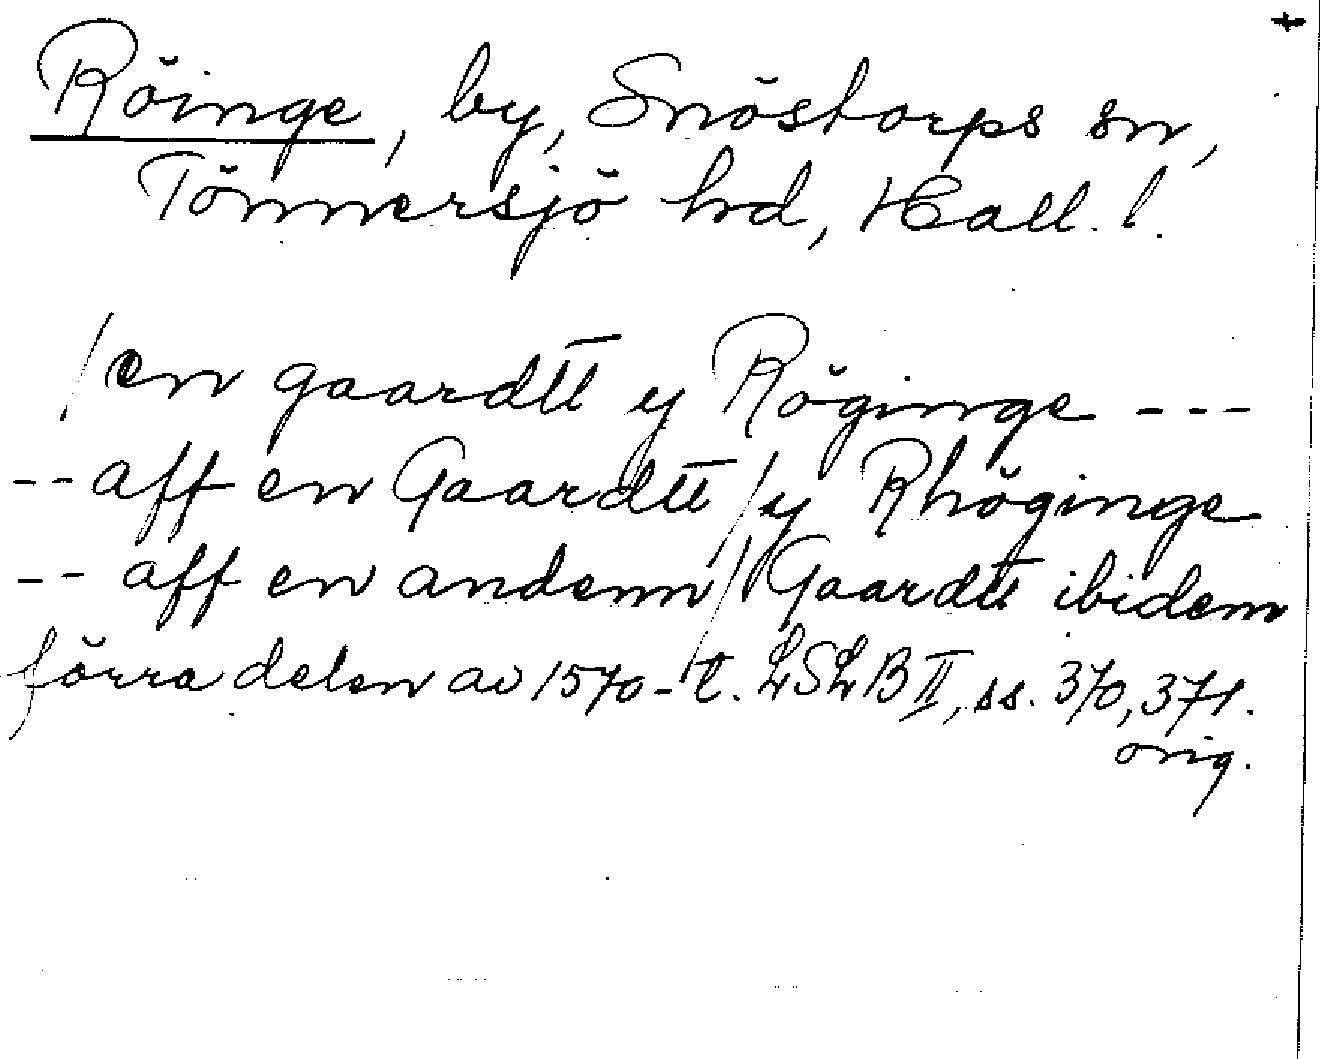 Röinge, by, Snöstorps sn,
Tönnersjö hd, Hall. l.
/en gaardtt y Röginge ---
-- aff en Gaardtt / y Rhöginge
-- aff en andenn / Gaardtt ibidem
förra delen av 1570-t. LSLB II, ss. 370, 371.
orig.